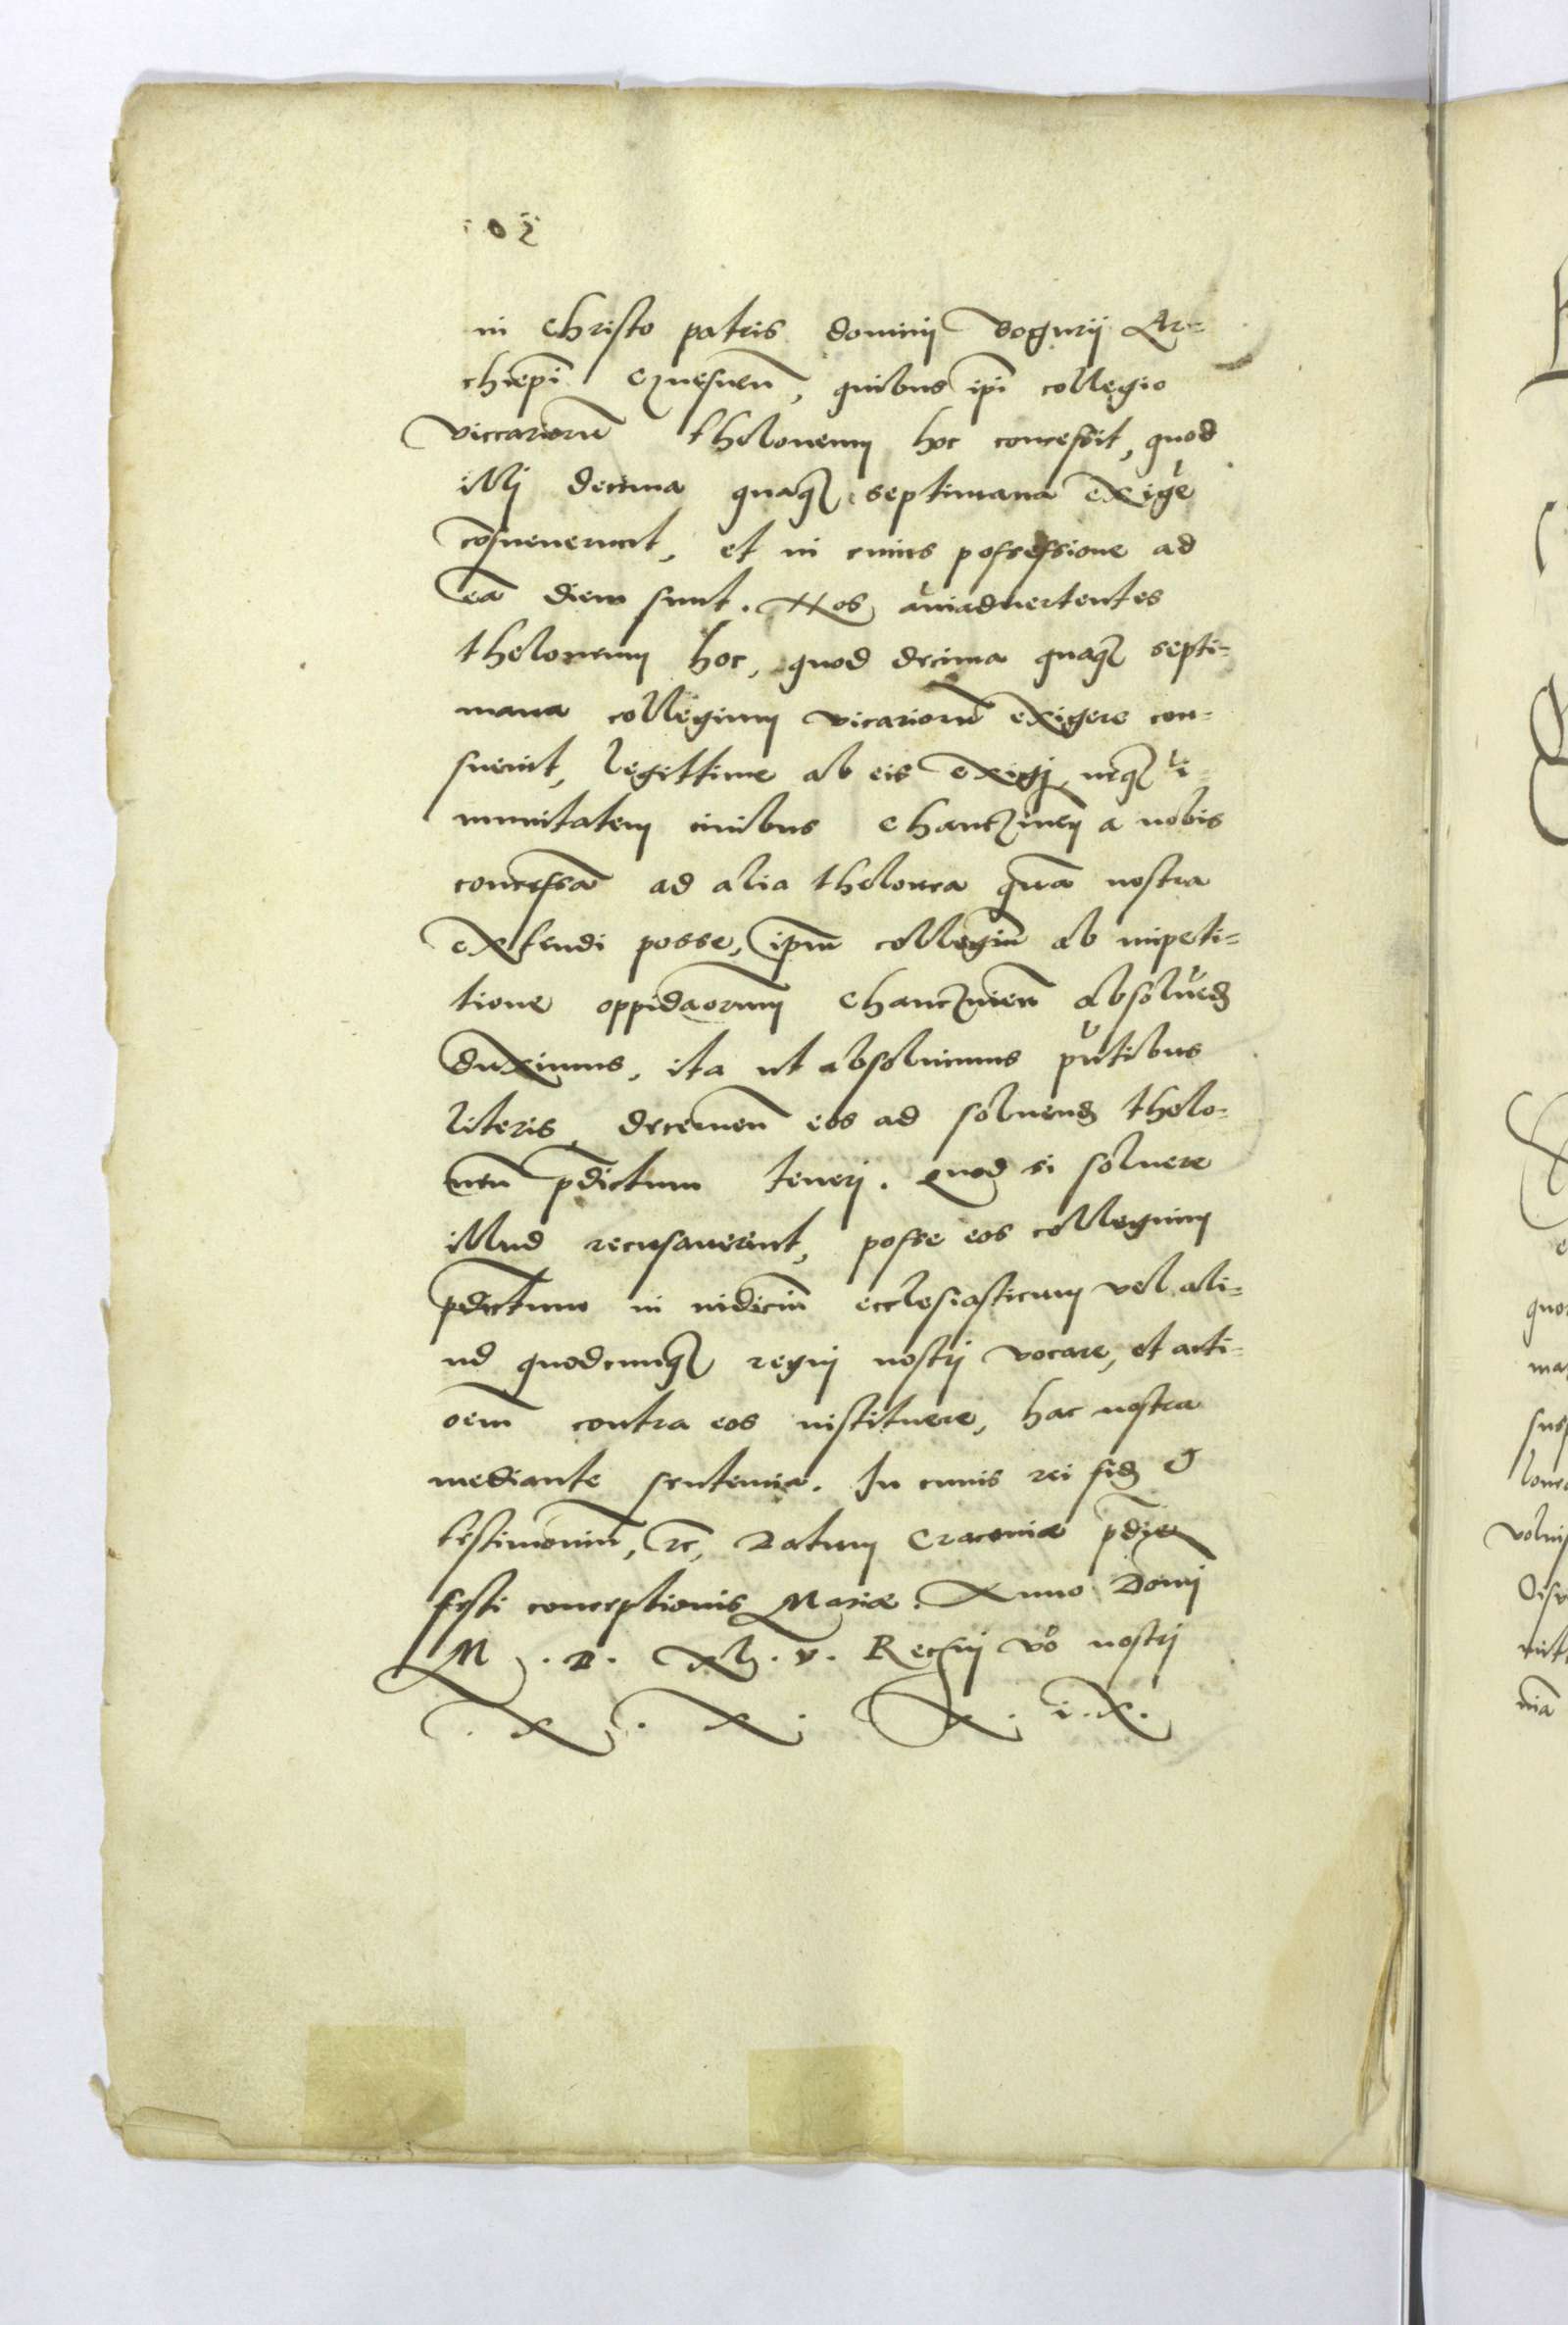 102
in Christo patris dominj Bogurij Ar=
chiepi Gnesnen̄, quibus ipi collegio
viccariorū theloneum hoc concessit, quod
illj decima quaq septimana exige
cōsueuerunt, et in cuius possessione ad
eā diem sunt. Nos aniaduertentes
theloneum hoc, quod decima quaq septi=
mana collegium vicariorū exigere con=
sueuit, legittime ab eis exigj, neq i=
munitatem ciuibus Chanczinen̄ a nobis
concessā ad alia thelonea quā nostra
extendi posse, ipm collegiū ab impeti=
tione oppidaorum Chanczinien̄ absoluend
duximus, ita ut absoluimus pntibus
literis, decernen̄ eos ad soluend thelo=
neū p̄dictum tenerj. Quod si soluere
illud recusauerint, posse eos collegium
p̄dictum in iudiciū ecclesiasticum vel ali=
ud quodcunq regnj nostrj vocare, et acti=
oem contra eos instituere, hac nostra
mediante sententia. In cuius rei fid et
testimoniū, rc, Datum Cracouiæ p̄die
festi conceptionis Mariæ. Anno Domj
M. D. XL. V. Regnj vo nostrj
. X . X . X . i. X.
quo
ma
lone
nia